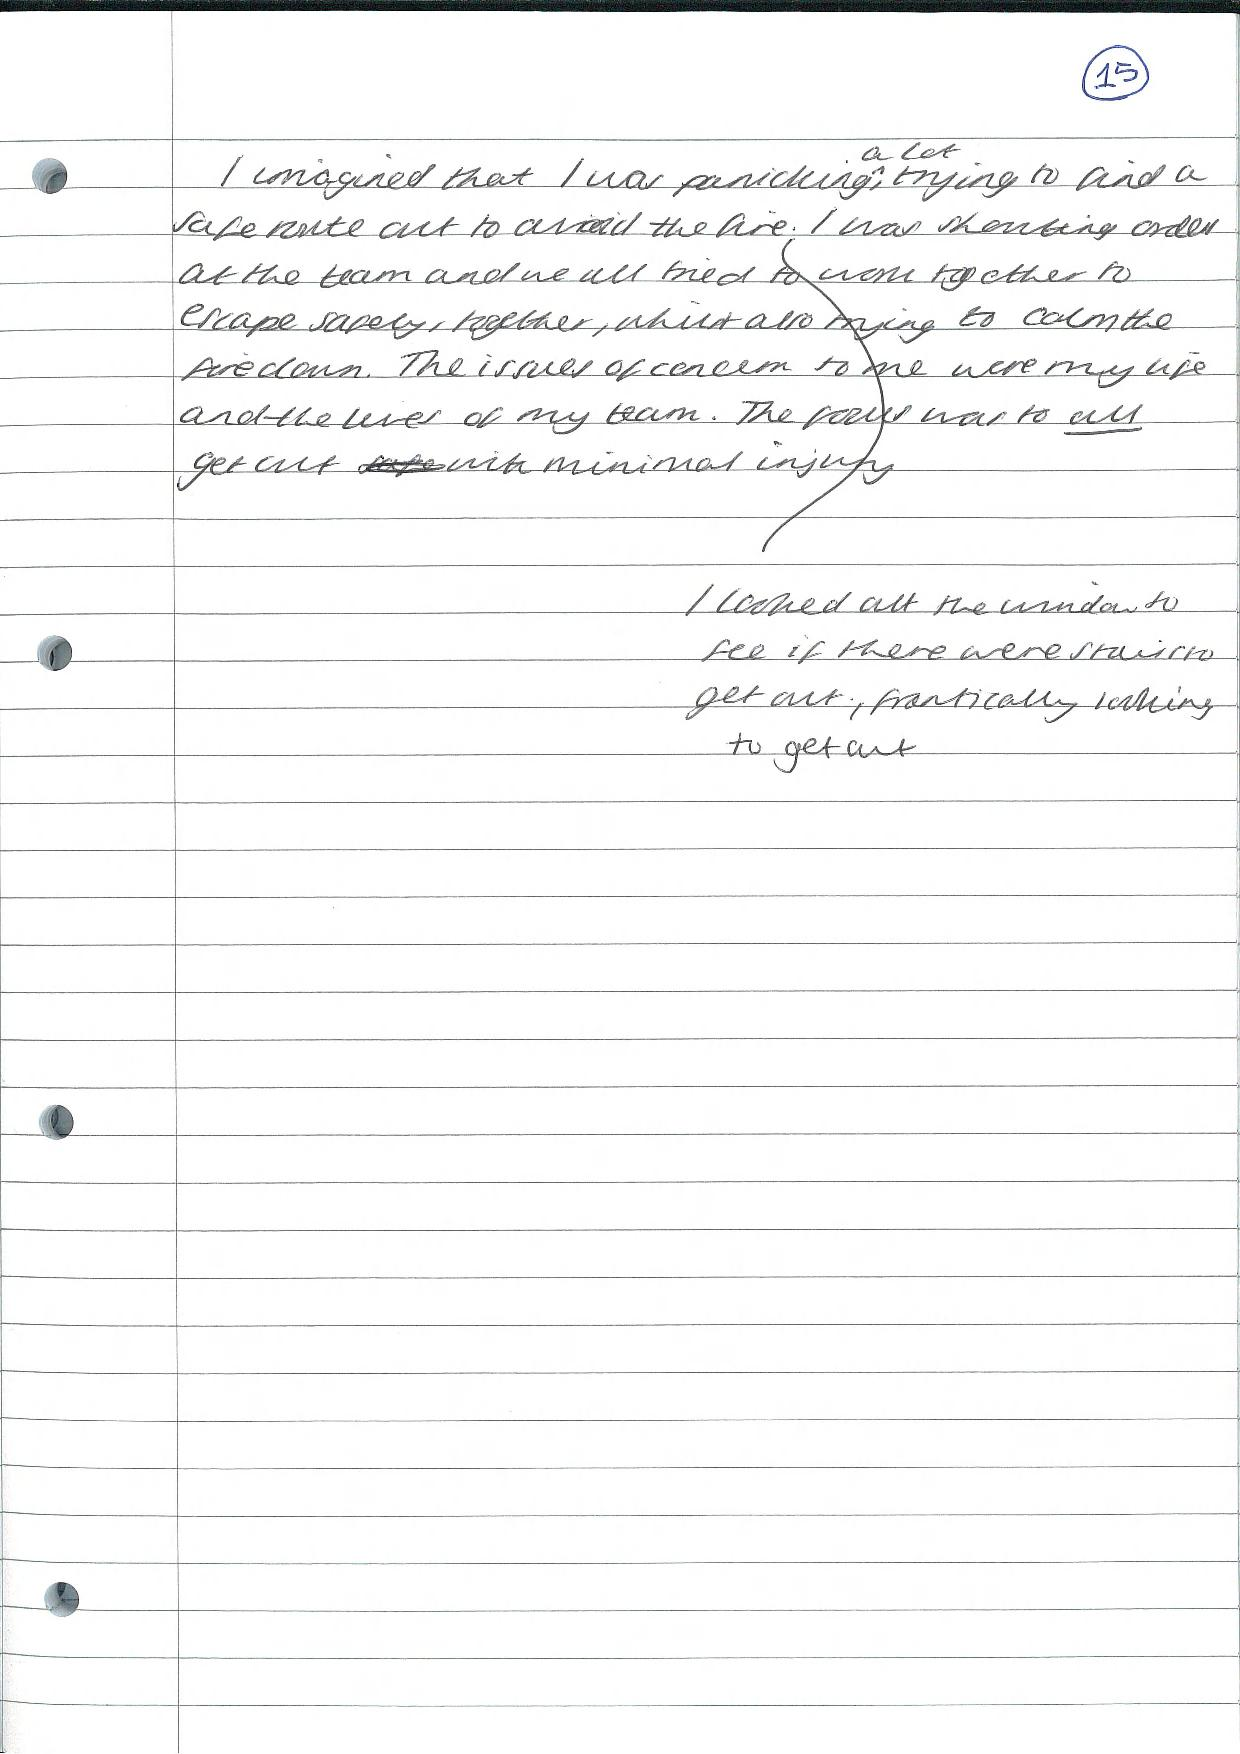 15
I imagined that I was panicking a lot, trying to find a
safe route out to avoid the fire. I was shouting orders
at the team and we all tried to work together to
escape safely, together, whilst also trying to calm the
fire down. The issues of concern to me were my life
and the lives of my team. The focus was to all
get out with minimal injury
I looked out the window to
see if there were stairs to
get out, frantically looking
to get out